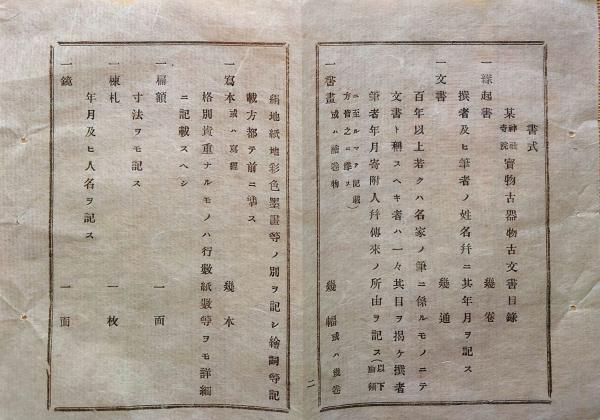 書式
某神社寺院寳物古器物古文書目錄
一緣起書 幾卷
撰者及ヒ筆者ノ姓名幷ニ其年月ヲ記ス
一文書 幾通
百年以上若クハ名家ノ筆ニ係ルモノニテ
文書ト稱スヘキ者ハ一々其目ヲ揭ケ撰者
筆者年月寄附人幷傳來ノ所由ヲ記ス(以下
ニ至ルマテ記載
方皆之ニ準ス)
一書畫或ハ繪卷物 幾幅或ハ幾卷
二
絹地紙地彩色墨畫等ノ別ヲ記シ繪詞等記
載方都テ前ニ準ス
一寫本或ハ寫經 幾本
格別貴重ナルモノハ行數紙數等ヲモ詳細
ニ記載スヘシ
一扁額 一面
寸法ヲモ記ス
一棟札 一枚
年月及ヒ人名ヲ記ス
一鏡 一面